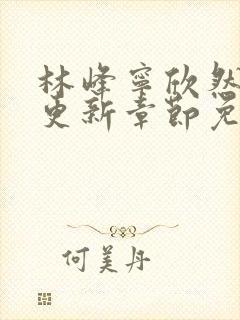 林峰寧欣然
更新章節免
何美丹